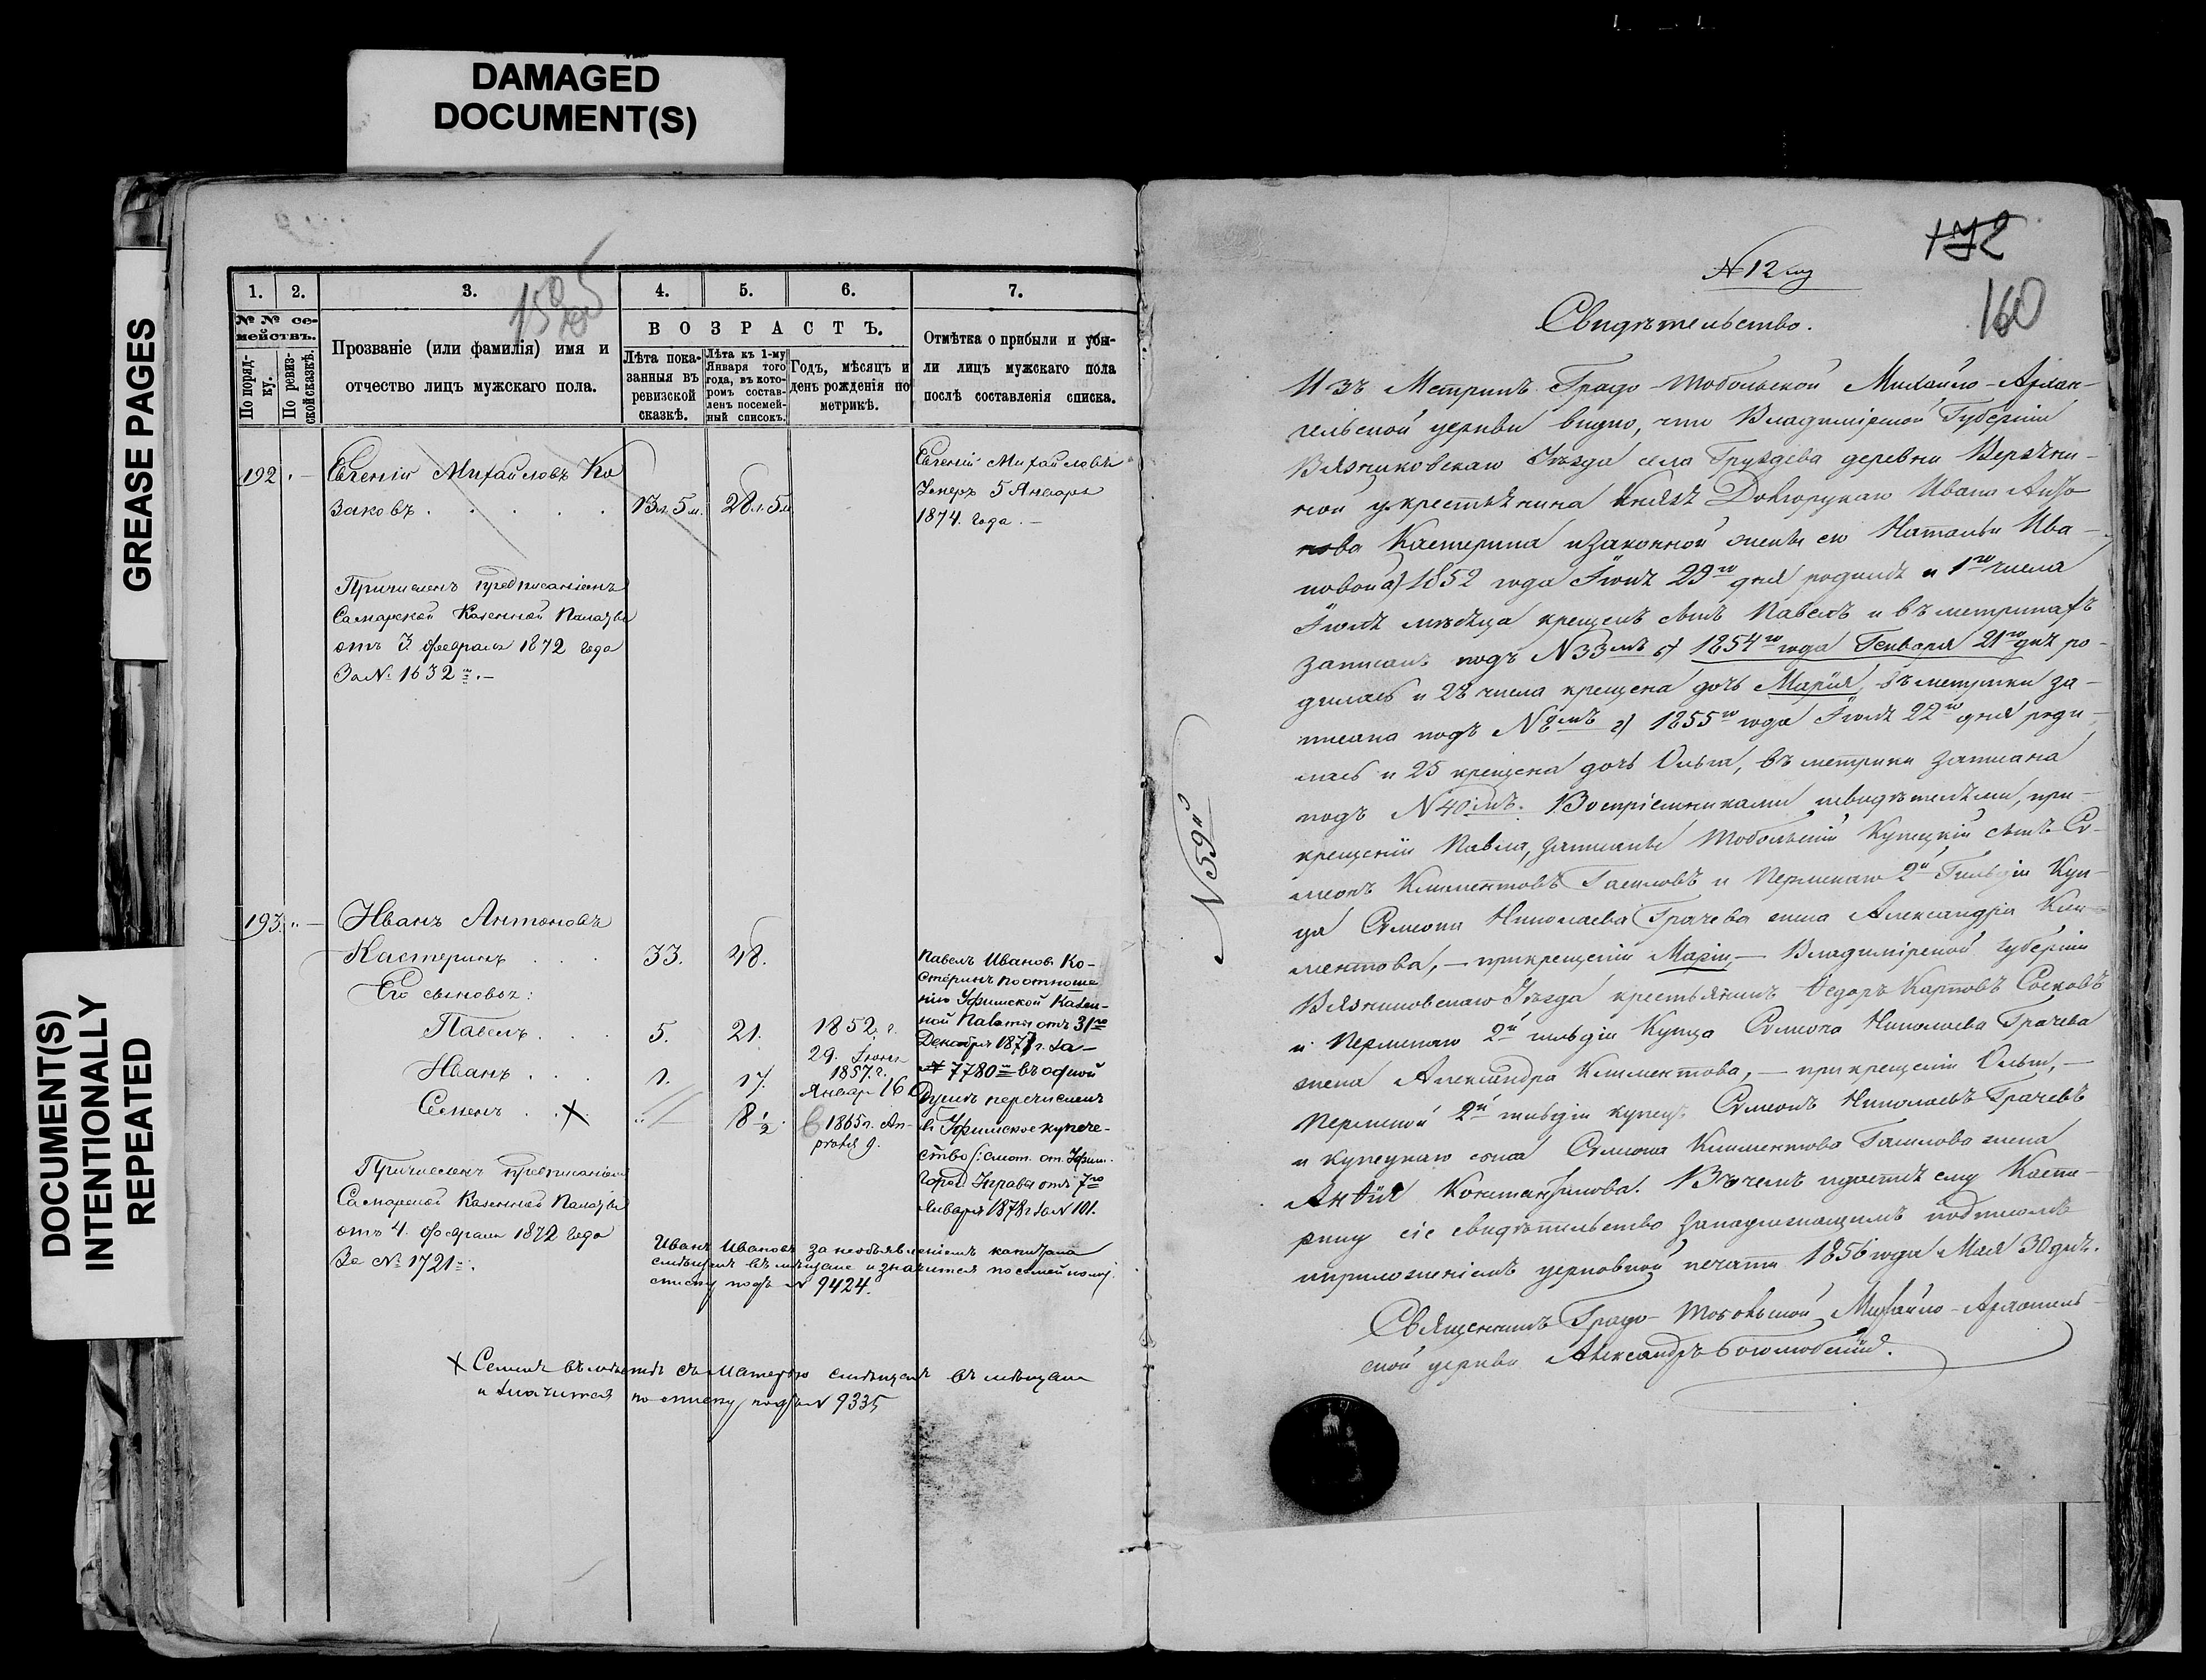 DAMAGED
DOCUMENT(S)
GREASE PAGES
DOCUMENT(S)
INTENTIONALLY
REPEATED
1. 2. 3. 4. 5. 6. 7.
№ № се-
мействъ.
По поряд-
ку.
По ревиз-
ской сказкѣ.
Прозваніе (или фамилія) имя и
отчество лицъ мужскаго пола.
ВОЗРАСТЪ.
Лѣта пока-
занныя въ
ревизской
сказкѣ.
Лѣта къ 1-му
Января того
года, въ кото-
ромъ состав-
ленъ посемей-
ный списокъ.
Годъ, мѣсяцъ и
день рожденія по
метрикѣ.
Отмѣтка о прибыли и убы-
ли лицъ мужскаго пола
послѣ составленія списка.
192 Евгеній Михайловъ Ко
заковъ 13 л. 5 м. 28 л. 5 м.
Евгеній Михайловъ
Умеръ 5 Января
1874. года. —
Причисленъ предписаніемъ
Самарской Казенной Палаты
отъ 3 февраля 1872 года
За № 1632 —
193. Иванъ Антоновъ
Кастеринъ 33. 48.
Его сыновья:
Павелъ 5. 21. 1852. г.
29. Іюня
Иванъ 1. 17. 1857. г.
Январ 16
Семенъ X 8 1/2 1865 г. Ап-
рѣля 9.
Павелъ Иванов Ко-
стеринъ по отноше
нію Уфимской Казен-
ной Палаты отъ 31го
Декабря 1877 г. за
№ 7780 въ одной
Душѣ перечисленъ
въ Уфимское купече-
ство (: смот. от. Уфим.
Город. Управы отъ 7го
Января 1878 г. за № 101.
Причисленъ предписаніемъ
Самарской Казенной Палаты
отъ 4. февраля 1872 года
За № 1721.
Иванъ Ивановъ за необъявленіемъ капитала
смѣщенъ въ мѣщане и значится по семейному
списку подъ № 9424.
X Семенъ вмѣстѣ съ Матерью смѣщенъ въ мѣщане
и значится по списку подъ № 9335
172
160
№ 12
№ 59й
Свидѣтельство.
Изъ Метрикъ Градо-Тобольской Михайло-Архан-
гельской церкви видно, что Владимірской Губерніи
Вязниковскаго Уѣзда села Груздева деревни
крестьянина Князя Долгорукаго Ивана Анто
нова Кастерина и законной жены его Натальи Ива-
новой а) 1852 года Іюня 29го дня родился и 1го числа
Іюля мѣсяца крещенъ сынъ Павелъ и въ метрикахъ
записанъ подъ № 33мъ б) 1854го года Генваря 21го дня ро-
дилась и 28 числа крещена дочь Марія, въ метрики за-
писана подъ № 8мъ в) 1855го года Іюля 22го дня роди-
лась и 25 крещена дочь Ольга, въ метрики записана
подъ № 40мъ. Воспріемниками и свидѣтелями, при
крещеніи Павла, записаны Тобольскій Купецкій сынъ Си-
меонъ Климентовъ и Пермскаго 2й Гильдіи Куп-
ца Симеона Николаева Грачева жена Александра Кли-
ментова, — при крещеніи Маріи — Владимірской Губерніи
Вязниковскаго Уѣзда крестьянинъ Ѳедоръ Карповъ
и Пермскаго 2й гильдіи Купца Симеона Николаева Грачева
жена Александра Климентова, — при крещеніи Ольги, —
Пермской 2й гильдіи купецъ Симеонъ Николаевъ Грачевъ
и купецкаго сына Симеона Климентова жена
Константинова. Въ чемъ и дается ему Касте-
рину сіе свидѣтельство за надлежащимъ подписомъ
и приложеніемъ церковной печати 1856 года Мая 30 дня.
Священникъ Градо-Тобольской Михайло-Архангель-
ской церкви Александръ Боголюбскій.